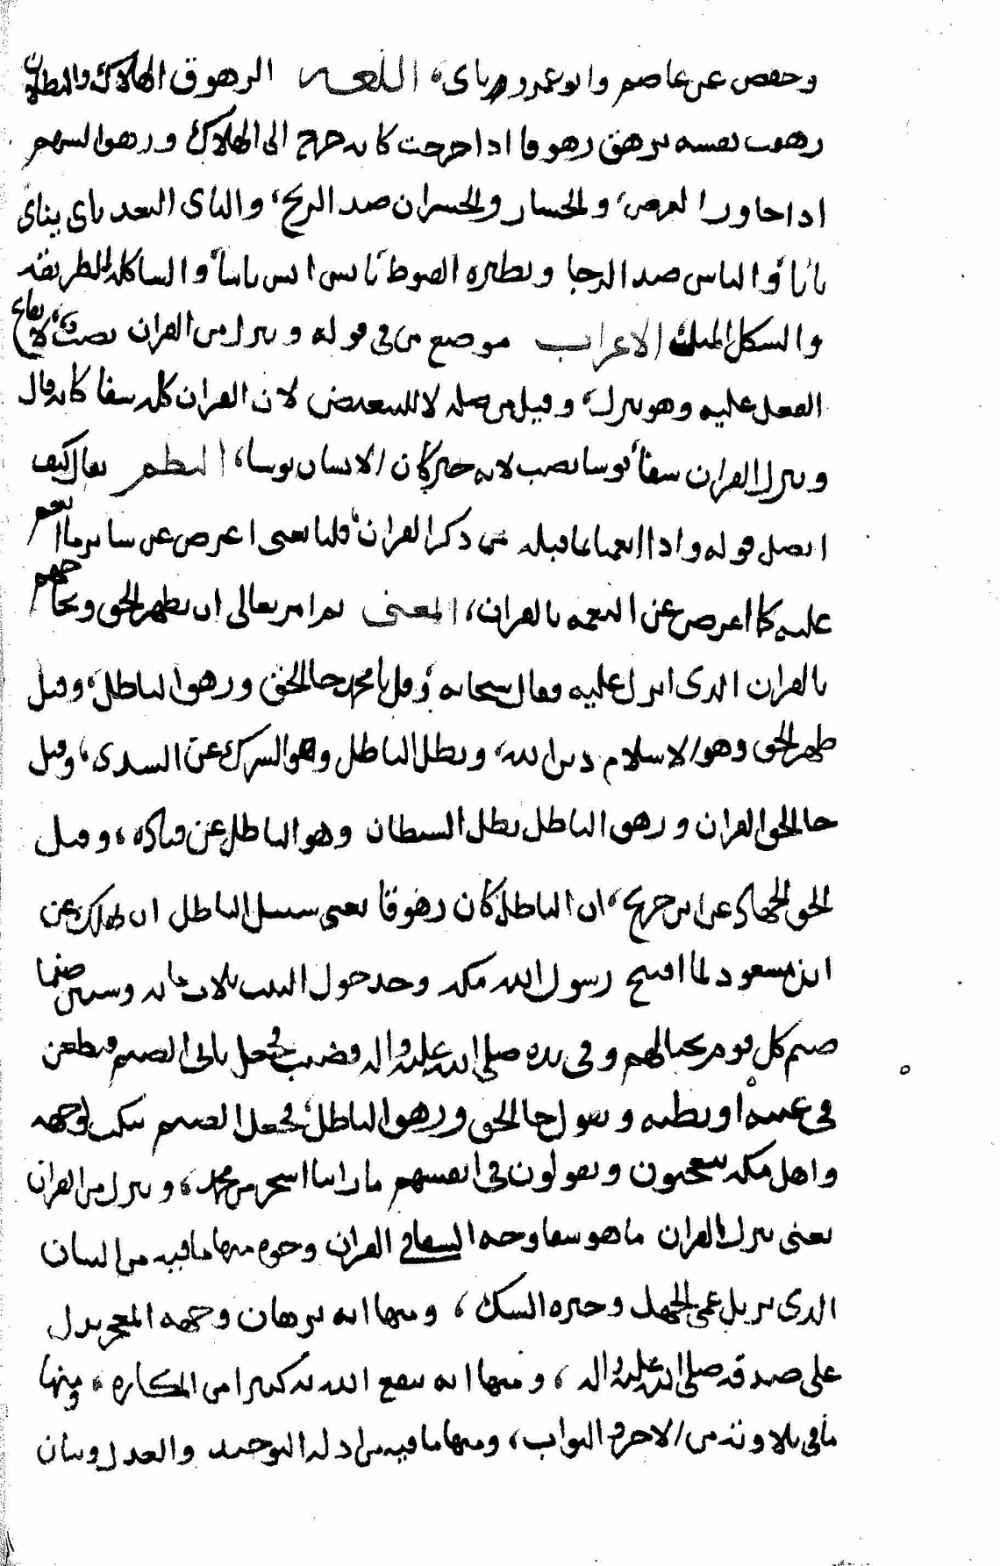 وحفص عن عاصم وابو عمرو وناي، اللغه الزهوق الهلاك والبطلان
زهقت نفسه تزهق زهوقا اذا خرجت كانه خرج الى الهلاك وزهق السهم
اذا جاوز الغرض، والخسار والخسران ضد الربح، والناي البعد ناى يناى
نايا، والياس ضد الرجا ونظيره القنوط يايس ايس ياسا، والشاكله الطريقه
والشكل المثل الاعراب موضع من في قوله وننزل من القران نصب، لايقاع
الفعل عليه وهو ننزل، وقيل من صله لا للتبعيض لان القران كله شفا كانه قال
وننزل القران شفا، يوسا نصب لانه خبر كان الانسان يوسا، النظم يقال كيف
اتصل قوله واذا انعمنا بما قبله من ذكر القران، قلنا يعني اعرض عن ساير ما انعم
عليه كما اعرض عن النعمه بالقران، المعنى ثم امر تعالى ان يظهر الحق ويحاجهم
بالقران الذي انزل عليه فقال سبحانه وقل يا محمد جا الحق وزهق الباطل، وقيل
ظهر الحق وهو الاسلام دين الله، وبطل الباطل وهو الشرك عن السدي، وقيل
جا الحق القران وزهق الباطل بطل الشيطان وهو الباطل عن قتاده، وقيل
الحق الجهاد عن ابن جريج، ان الباطل كان زهوقا يعني سبيل الباطل ان يهلك عن
ابن مسعود لما افتتح رسول الله مكه وجد حول البيت ثلاث مايه وستين صنما
صنم كل قوم بحيالهم وفي يده صلى الله عليه واله قضيب فجعل ياتي الصنم فيطعن
في عينه او بطنه ويقول جا الحق وزهق الباطل، فجعل الصنم ينكب لوجهه
واهل مكه يتعجبون ويقولون في انفسهم ما راينا اسحر من محمد، وننزل من القران
يعني ننزل القران ما هو شفا وجه الشفا في القران وجوه منها ما فيه من البيان
الذي يزيل عمى الجهل وحيره الشك، ومنها انه برهان وجهه المعجز يدل
على صدقه صلى الله عليه واله، ومنها انه يدفع الله به كثيرا من المكاره، ومنها
ما في تلاوته من الاجر والثواب، ومنها ما فيه من ادله التوحيد والعدل وبيان